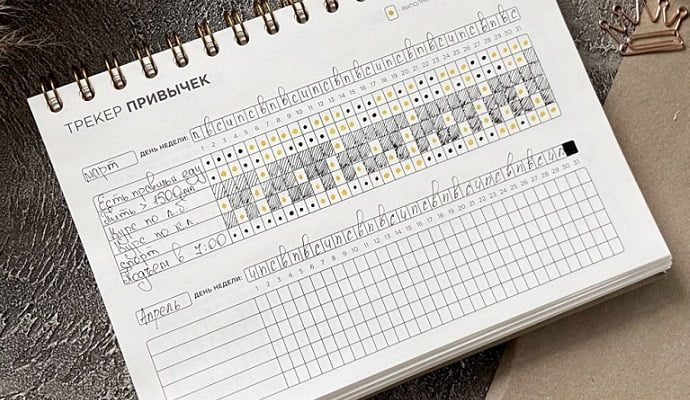 ТРЕКЕР ПРИВЫЧЕК
март ДЕНЬ НЕДЕЛИ: п в с ч п с в п в с ч п с в п в с ч п с в п в с ч п с в п в с
1 2 3 4 5 6 7 8 9 10 11 12 13 14 15 16 17 18 19 20 21 22 23 24 25 26 27 28 29 30 31
Есть еду
Пить > 1500 мл
Курс по
Курс по
спорт
Подъем в 7:00
Апрель ДЕНЬ НЕДЕЛИ: ч п с в п в с ч п с в п в с ч п с в п в с ч п с в п в с ч п
1 2 3 4 5 6 7 8 9 10 11 12 13 14 15 16 17 18 19 20 21 22 23 24 25 26 27 28 29 30 31